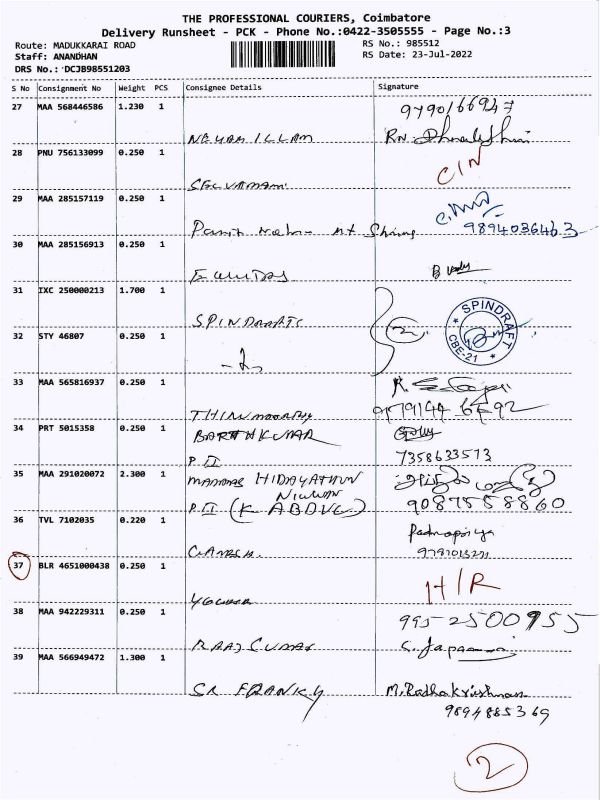 THE PROFESSIONAL COURIERS, Coimbatore
Delivery Runsheet - PCK - Phone No.:0422-3505555 - Page No.:3
Route: MADUKKARAI ROAD
RS No.: 985512
Staff: ANANDHAN
RS Date: 23-Jul-2022
DRS No.: DCJB98551203
S No Consignment No Weight PCS Consignee Details Signature
27 MAA 568446586 1.230 1
28 PNU 756133099 0.250 1
29 MAA 285157119 0.250 1
9894036463
30 MAA 285156913 0.250 1
31 IXC 250000213 1.700 1
SPINDRAFT
CBE-21
32 STY 46807 0.250 1
33 MAA 565816937 0.250 1
34 PRT 5015358 0.250 1
BARATHKUMAR
P II
7358633513
35 MAA 291020072 2.300 1
HIDAYATHUN
P II (K ABDUL)
9087558860
36 TVL 7102035 0.220 1
Padmapriya
37 BLR 4651000438 0.250 1
H/R
38 MAA 942229311 0.250 1
9952500955
RAAJ CUMAR
39 MAA 566949472 1.300 1
SR FRANKY M. Radhakrishnan
9894885369
2